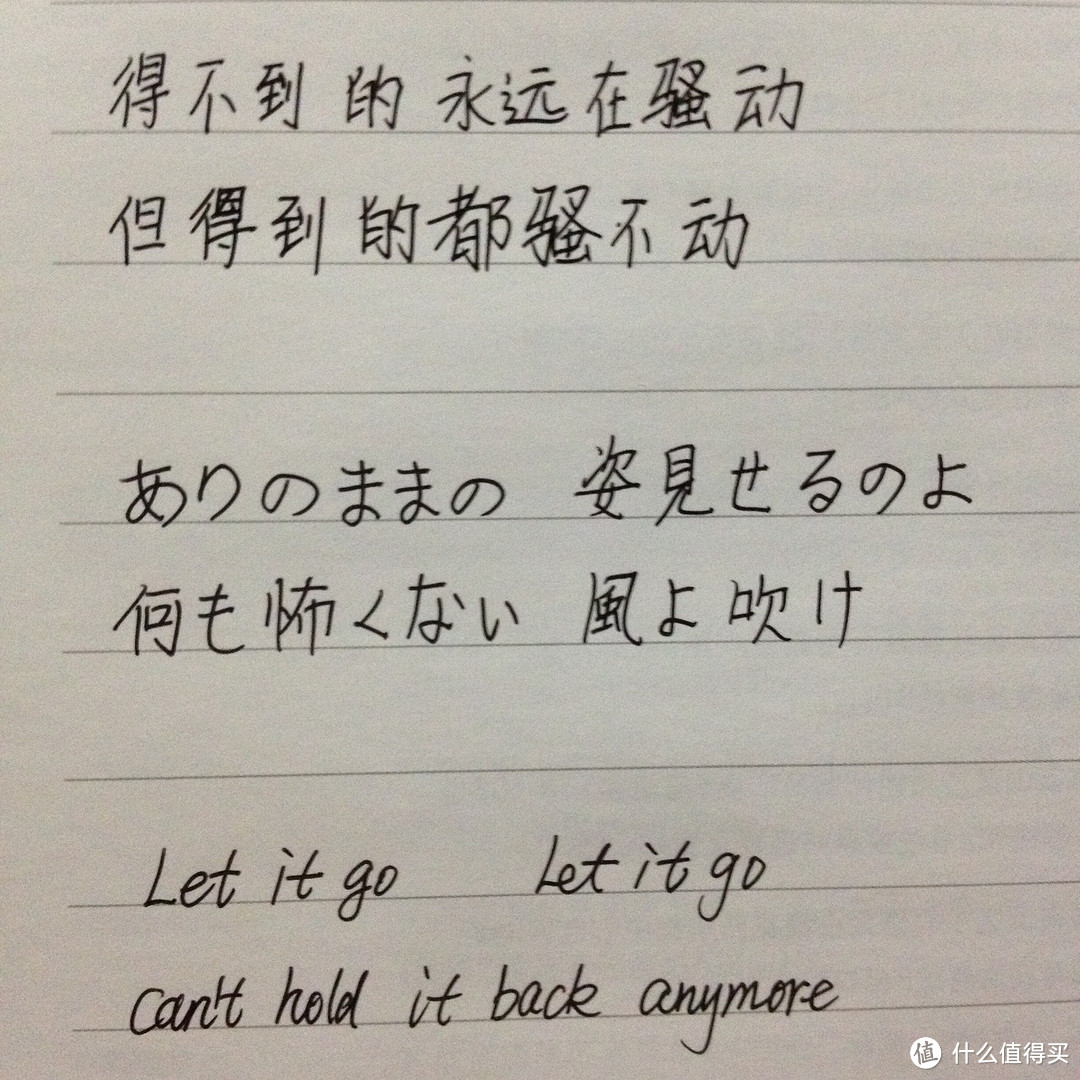 得不到的永远在骚动
但得到的都骚不动
ありのままの 姿見せるのよ
何も怖くない 風よ吹け
Let it go Let it go
can't hold it back anymore
值 什么值得买